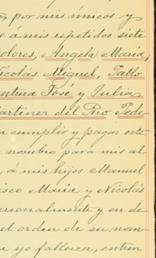 , por mis únicos y
o á mis repetidos siete
olores, Angela María,
icolas Miguel, Pablo
entura José y Julia
artinez del Rio Pede
a cumplir y pagar este
nombro para mis al
, á mis hijos Manuel
isco María y Nicolás
ersonalmente y en de
el orden de su nom
e yo fallezca, entien